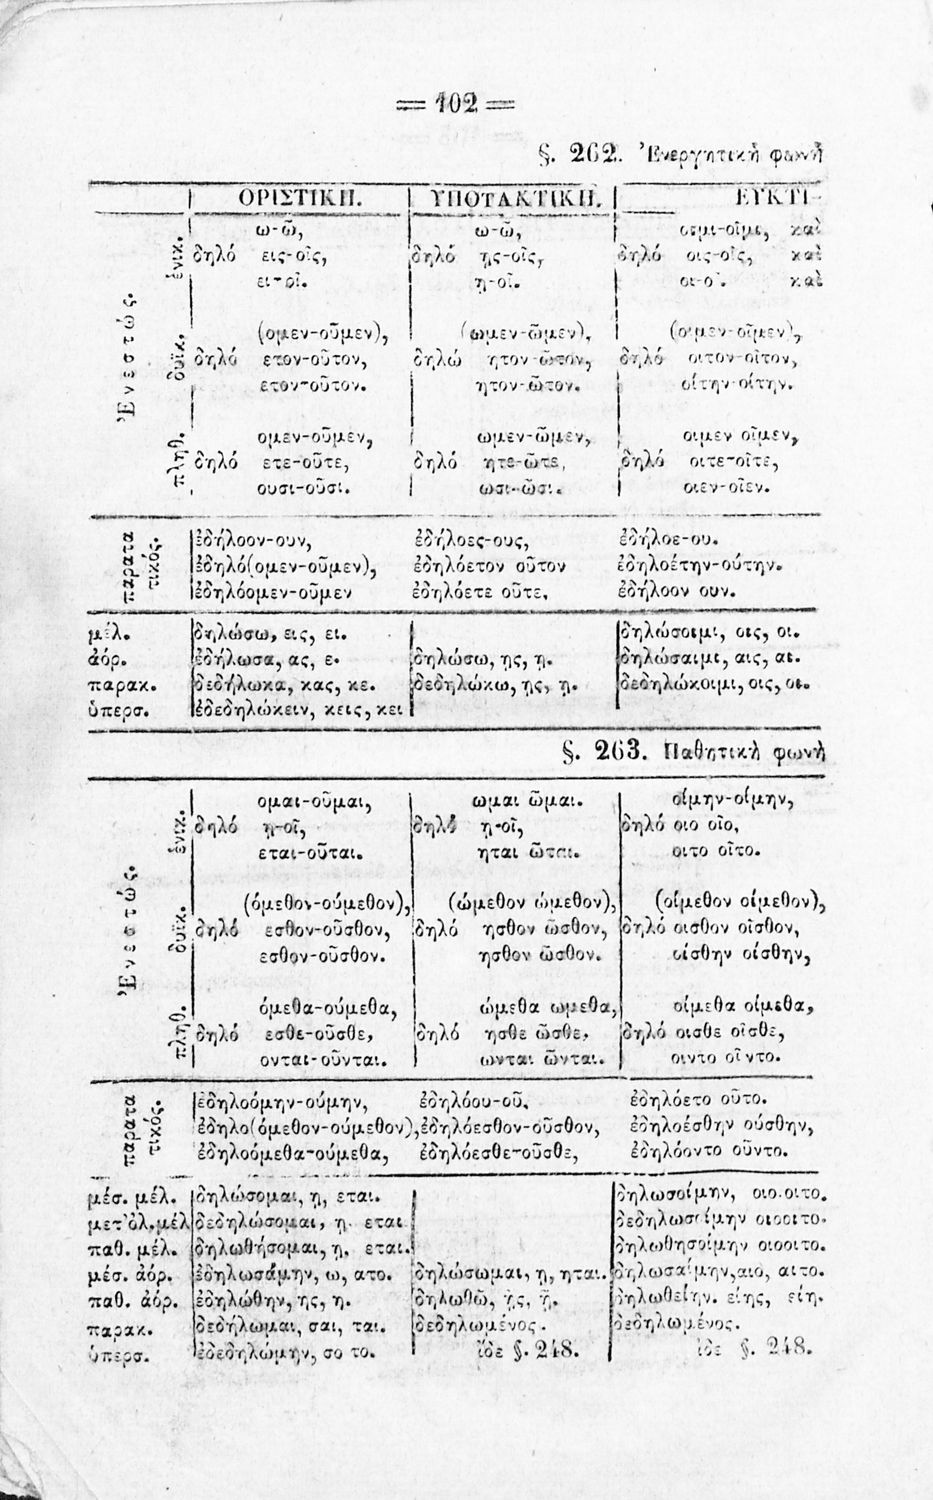 = 102 =
§. 262. Ἐνεργητικὴ φωνὴ
ΟΡΙΣΤΙΚΗ. ΥΠΟΤΑΚΤΙΚΗ. ΕΥΚΤΙ-
Ἐνεστώς.
ἑνικ.
ω-ῶ, ω-ῶ, οιμι-οῖμι, καὶ
δηλό εις-οῖς, δηλό ῃς-οῖς, δηλό οις-οῖς, καὶ
ει-οῖ. ῃ-οῖ. οι-οῖ. καὶ
δυϊκ.
(ομεν-οῦμεν), (ωμεν-ῶμεν), (οιμεν-οῖμεν),
δηλό ετον-οῦτον, δηλώ ητον-ῶτον, δηλό οιτον-οῖτον,
ετον-οῦτον. ητον-ῶτον. οίτην-οίτην.
πληθ.
ομεν-οῦμεν, ωμεν-ῶμεν, οιμεν οῖμεν,
δηλό ετε-οῦτε, δηλό ητε-ῶτε, δηλό οιτε-οῖτε,
ουσι-οῦσι. ωσι-ῶσι. οιεν-οῖεν.
παρατατικός.
ἐδήλοον-ουν, ἐδήλοες-ους, ἐδήλοε-ου.
ἐδηλό(ομεν-οῦμεν), ἐδηλόετον οῦτον ἐδηλοέτην-ούτην.
ἐδηλόομεν-οῦμεν ἐδηλόετε οῦτε, ἐδήλοον ουν.
μέλ. δηλώσω, εις, ει. δηλώσοιμι, οις, οι.
ἀόρ. ἐδήλωσα, ας, ε. δηλώσω, ῃς, ῃ. δηλώσαιμι, αις, αι.
παρακ. δεδήλωκα, κας, κε. δεδηλώκω, ῃς, ῃ. δεδηλώκοιμι, οις, οι.
ὑπερσ. ἐδεδηλώκειν, κεις, κει
§. 263. Παθητικὴ φωνὴ
Ἐνεστώς.
ἑνικ.
ομαι-οῦμαι, ωμαι ῶμαι. οίμην-οίμην,
δηλό ῃ-οῖ, δηλό ῃ-οῖ, δηλό οιο οῖο,
εται-οῦται. ηται ῶται. οιτο οῖτο.
δυϊκ.
(όμεθον-ούμεθον), (ώμεθον ώμεθον), (οίμεθον οίμεθον),
δηλό εσθον-οῦσθον, δηλό ησθον ῶσθον, δηλό οισθον οῖσθον,
εσθον-οῦσθον. ησθον ῶσθον. οίσθην οίσθην,
πληθ.
όμεθα-ούμεθα, ώμεθα ωμεθα, οίμεθα οίμεθα,
δηλό εσθε-οῦσθε, δηλό ησθε ῶσθε, δηλό οισθε οῖσθε,
ονται-οῦνται. ωνται ῶνται. οιντο οῖντο.
παρατατικός.
ἐδηλοόμην-ούμην, ἐδηλόου-οῦ, ἐδηλόετο οῦτο.
ἐδηλο(όμεθον-ούμεθον), ἐδηλόεσθον-οῦσθον, ἐδηλοέσθην ούσθην,
ἐδηλοόμεθα-ούμεθα, ἐδηλόεσθε-οῦσθε, ἐδηλόοντο οῦντο.
μέσ. μέλ. δηλώσομαι, ῃ, εται. δηλωσοίμην, οιο.οιτο.
μετ'ὀλ.μέλ δεδηλώσομαι, ῃ. εται δεδηλωσοίμην οιοοιτο.
παθ. μέλ. δηλωθήσομαι, ῃ, εται. δηλωθησοίμην οιοοιτο.
μέσ. ἀόρ. ἐδηλωσάμην, ω, ατο. δηλώσωμαι, ῃ, ηται. δηλωσαίμην, αιο, αιτο.
παθ. ἀόρ. ἐδηλώθην, ης, η. δηλωθῶ, ῇς, ῇ. δηλωθείην. είης, είη.
παρακ. δεδήλωμαι, σαι, ται. δεδηλωμένος. δεδηλωμένος.
ὑπερσ. ἐδεδηλώμην, σο το. ἴδε §. 248. ἰδε §. 248.